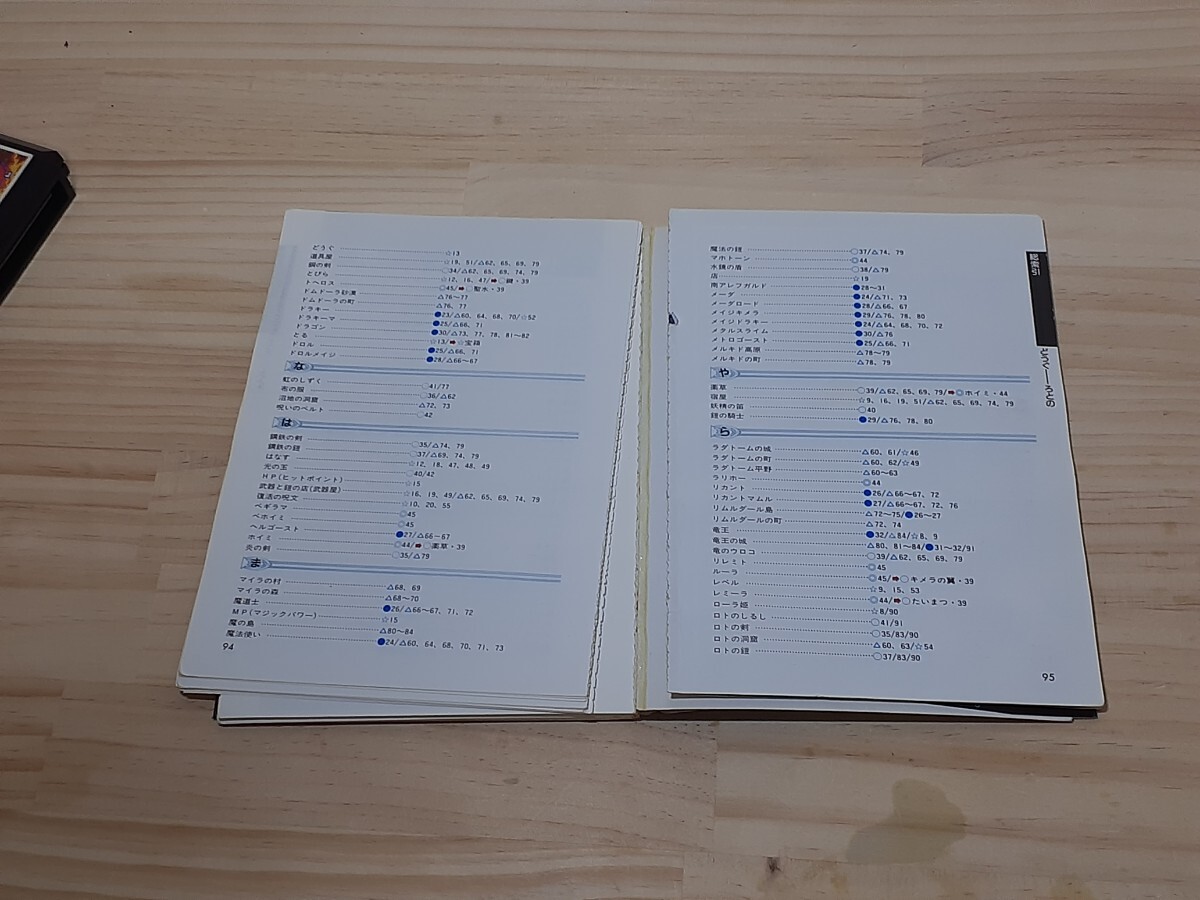 どうぐ ☆13
道具屋 ☆19、51/△62、65、69、79
銅の剣 ○34/△62、65、69、74、79
とびら ☆12、16、47/➡○鍵・39
トヘロス ◎45/➡○聖水・39
ドムドーラ砂漠 △76〜77
ドムドーラの町 △76、77
ドラキー ●23/△60、64、68、70/☆52
ドラキーマ ●25/△66、71
ドラゴン ●30/△73、77、78、81〜82
とる ☆13/➡☆宝箱
ドロル ●25/△66、71
ドロルメイジ ●28/△66〜67
な
虹のしずく ○41/77
布の服 ○36/△62
沼地の洞窟 △72、73
呪いのベルト ○42
は
鋼鉄の剣 ○35/△74、79
鋼鉄の鎧 ○37/△69、74、79
はなす ☆12、18、47、48、49
光の玉 ○40/42
HP(ヒットポイント) ☆15
武器と鎧の店(武器屋) ☆16、19、49/△62、65、69、74、79
復活の呪文 ☆10、20、55
ベギラマ ◎45
ベホイミ ◎45
ヘルゴースト ●27/△66〜67
ホイミ ◎44/➡○薬草・39
炎の剣 ○35/△79
ま
マイラの村 △68、69
マイラの森 △68〜70
魔道士 ●26/△66〜67、71、72
MP(マジックパワー) ☆15
魔の島 △80〜84
魔法使い ●24/△60、64、68、70、71、73
94
魔法の鎧 ○37/△74、79
マホトーン ◎44
水鏡の盾 ○38/△79
店 ☆19
南アレフガルド ●28〜31
メーダ ●24/△71、73
メーダロード ●28/△66、67
メイジキメラ ●29/△76、78、80
メイジドラキー ●24/△64、68、70、72
メタルスライム ●30/△76
メトロゴースト ●25/△66、71
メルキド高原 △78〜79
メルキドの町 △78、79
や
薬草 ○39/△62、65、69、79/➡◎ホイミ・44
宿屋 ☆9、16、19、51/△62、65、69、74、79
妖精の笛 ○40
鎧の騎士 ●29/△76、78、80
ら
ラダトームの城 △60、61/☆46
ラダトームの町 △60、62/☆49
ラダトーム平野 △60〜63
ラリホー ◎44
リカント ●26/△66〜67、72
リカントマムル ●27/△66〜67、72、76
リムルダール島 △72〜75/●26〜27
リムルダールの町 △72、74
竜王 ●32/△84/☆8、9
竜王の城 △80、81〜84/●31〜32/91
竜のウロコ ○39/△62、65、69、79
リレミト ◎45
ルーラ ◎45/➡○キメラの翼・39
レベル ☆9、15、53
レミーラ ◎44/➡○たいまつ・39
ローラ姫 ☆8/90
ロトのしるし ○41/91
ロトの剣 ○35/83/90
ロトの洞窟 △60、63/☆54
ロトの鎧 ○37/83/90
95
総索引
どうぐ――ろとの